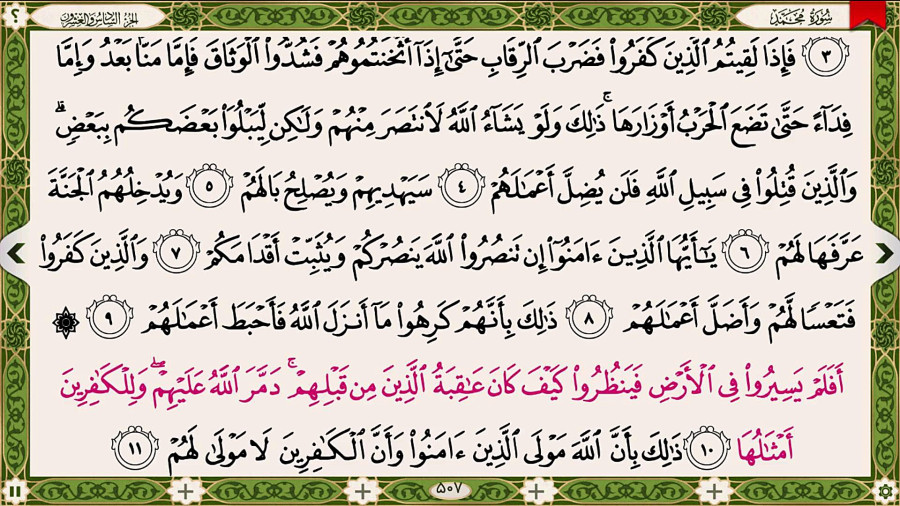 ؟ الجزء السادس والعشرون سُورَةُ مُحَمَّد
٣ فَإِذَا لَقِيتُمُ ٱلَّذِينَ كَفَرُواْ فَضَرْبَ ٱلرِّقَابِ حَتَّىٰٓ إِذَآ أَثْخَنتُمُوهُمْ فَشُدُّواْ ٱلْوَثَاقَ فَإِمَّا مَنَّۢا بَعْدُ وَإِمَّا
فِدَآءً حَتَّىٰ تَضَعَ ٱلْحَرْبُ أَوْزَارَهَا ۚ ذَٰلِكَ وَلَوْ يَشَآءُ ٱللَّهُ لَٱنتَصَرَ مِنْهُمْ وَلَٰكِن لِّيَبْلُوَاْ بَعْضَكُم بِبَعْضٍ ۗ
وَٱلَّذِينَ قُتِلُواْ فِى سَبِيلِ ٱللَّهِ فَلَن يُضِلَّ أَعْمَٰلَهُمْ ٤ سَيَهْدِيهِمْ وَيُصْلِحُ بَالَهُمْ ٥ وَيُدْخِلُهُمُ ٱلْجَنَّةَ
عَرَّفَهَا لَهُمْ ٦ يَٰٓأَيُّهَا ٱلَّذِينَ ءَامَنُوٓاْ إِن تَنصُرُواْ ٱللَّهَ يَنصُرْكُمْ وَيُثَبِّتْ أَقْدَامَكُمْ ٧ وَٱلَّذِينَ كَفَرُواْ
فَتَعْسًا لَّهُمْ وَأَضَلَّ أَعْمَٰلَهُمْ ٨ ذَٰلِكَ بِأَنَّهُمْ كَرِهُواْ مَآ أَنزَلَ ٱللَّهُ فَأَحْبَطَ أَعْمَٰلَهُمْ ٩ ۞
أَفَلَمْ يَسِيرُواْ فِى ٱلْأَرْضِ فَيَنظُرُواْ كَيْفَ كَانَ عَٰقِبَةُ ٱلَّذِينَ مِن قَبْلِهِمْ ۚ دَمَّرَ ٱللَّهُ عَلَيْهِمْ ۖ وَلِلْكَٰفِرِينَ
أَمْثَٰلُهَا ١٠ ذَٰلِكَ بِأَنَّ ٱللَّهَ مَوْلَى ٱلَّذِينَ ءَامَنُواْ وَأَنَّ ٱلْكَٰفِرِينَ لَا مَوْلَىٰ لَهُمْ ١١
۵۰۷